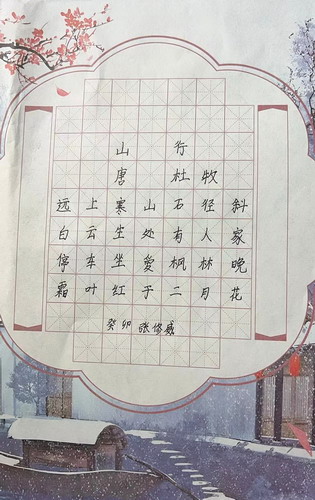 山行
唐 杜牧
远上寒山石径斜
白云生处有人家
停车坐愛枫林晚
霜叶红于二月花
癸卯 张修威